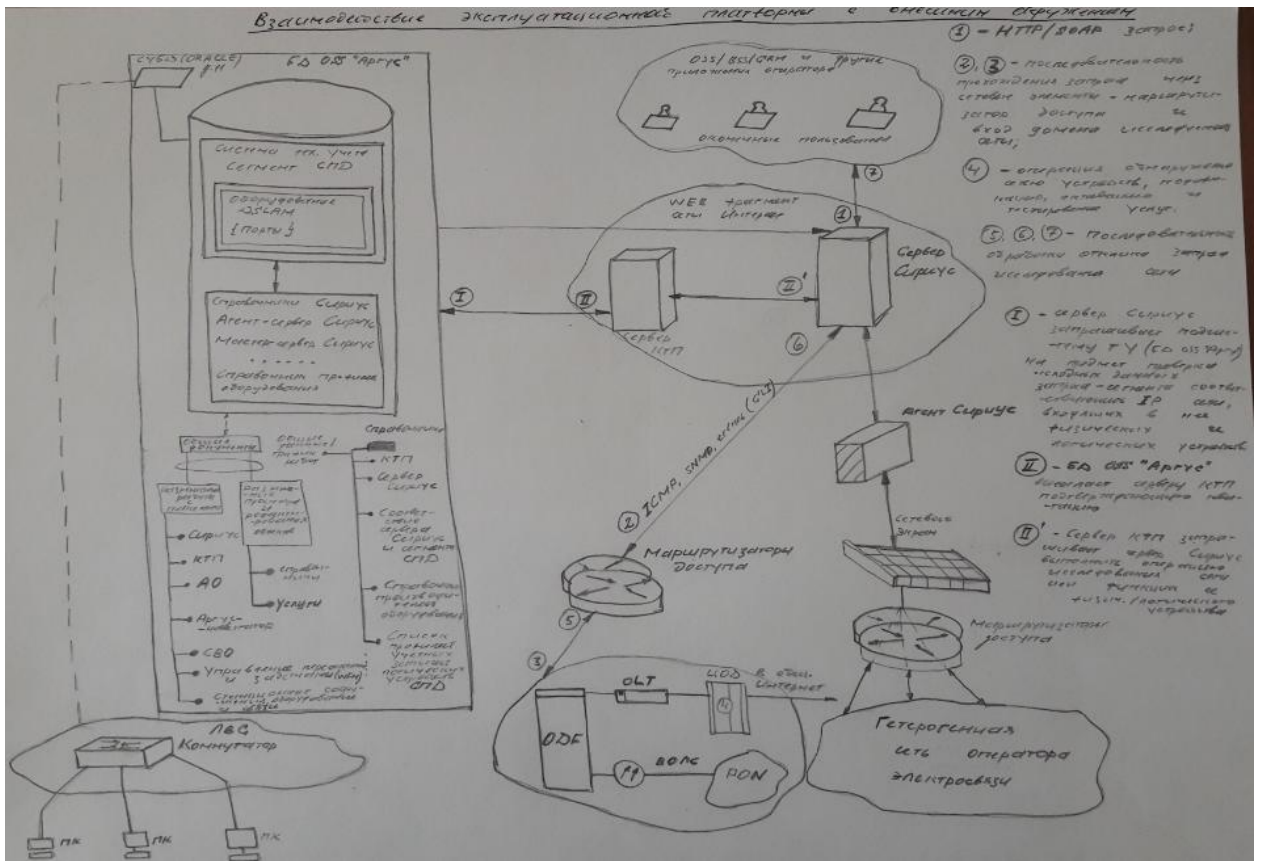 Взаимодействие эксплуатационной платформы с внешним окружением
СУБД (ORACLE)
БД OSS "Аргус"
Система тех. учета
Сегмент СПД
Оборудование
DSLAM
{Порты}
Справочники Сириус
Агент-сервер Сириус
Мастер-сервер Сириус
......
Справочники
оборудования
Общие
Справочники
Сириус
КТП
АО
Аргус-
СВО
Управление
и
Справоч-
ники
Услуги
КТП
Сервер
Сириус
Соответ-
ствие
сервера
Сириус
и сегмента
СПД
Справочник
производи-
телей
оборудования
Список
учетных
логических
устройств
СПД
ЛВС
Коммутатор
ПК
ПК
ПК
OSS/BSS/CRM и другие
приложения оператора
оконечные пользователи
7
WEB фрагмент
сети Интернет
1
Сервер
Сириус
I
II
II'
Сервер
КТП
6
Агент Сириус
ICMP, SNMP, telnet (CLI)
2
Маршрутизаторы
доступа
Сетевой
экран
5
3
Маршрутизаторы
доступа
OLT
ЦОД
4
В
Интернет
ODF
ВОЛС
PON
Гетерогенная
сеть оператора
электросвязи
1 - HTTP/SOAP запрос;
2, 3 - последовательность
прохождения запроса через
сетевые элементы - маршрути-
затор доступа и
вход домена исследуемой
сети;
4 - операция обнаружения
устройств,
активации и
тестирования услуг.
5, 6, 7 - последовательность
обработки отклика запроса
исследования сети
I - сервер Сириус
запрашивает подсис-
тему ТУ (БД OSS "Аргус")
на предмет проверки
исходных данных
запроса - сегмента соответ-
IP сети,
входящих в нее
физических и
логических устройств
II - БД OSS "Аргус"
высылает серверу КТП
II' - Сервер КТП запра-
шивает сервер Сириус
выполнить операцию
исследования сети
или функции
физич./логического
устройства